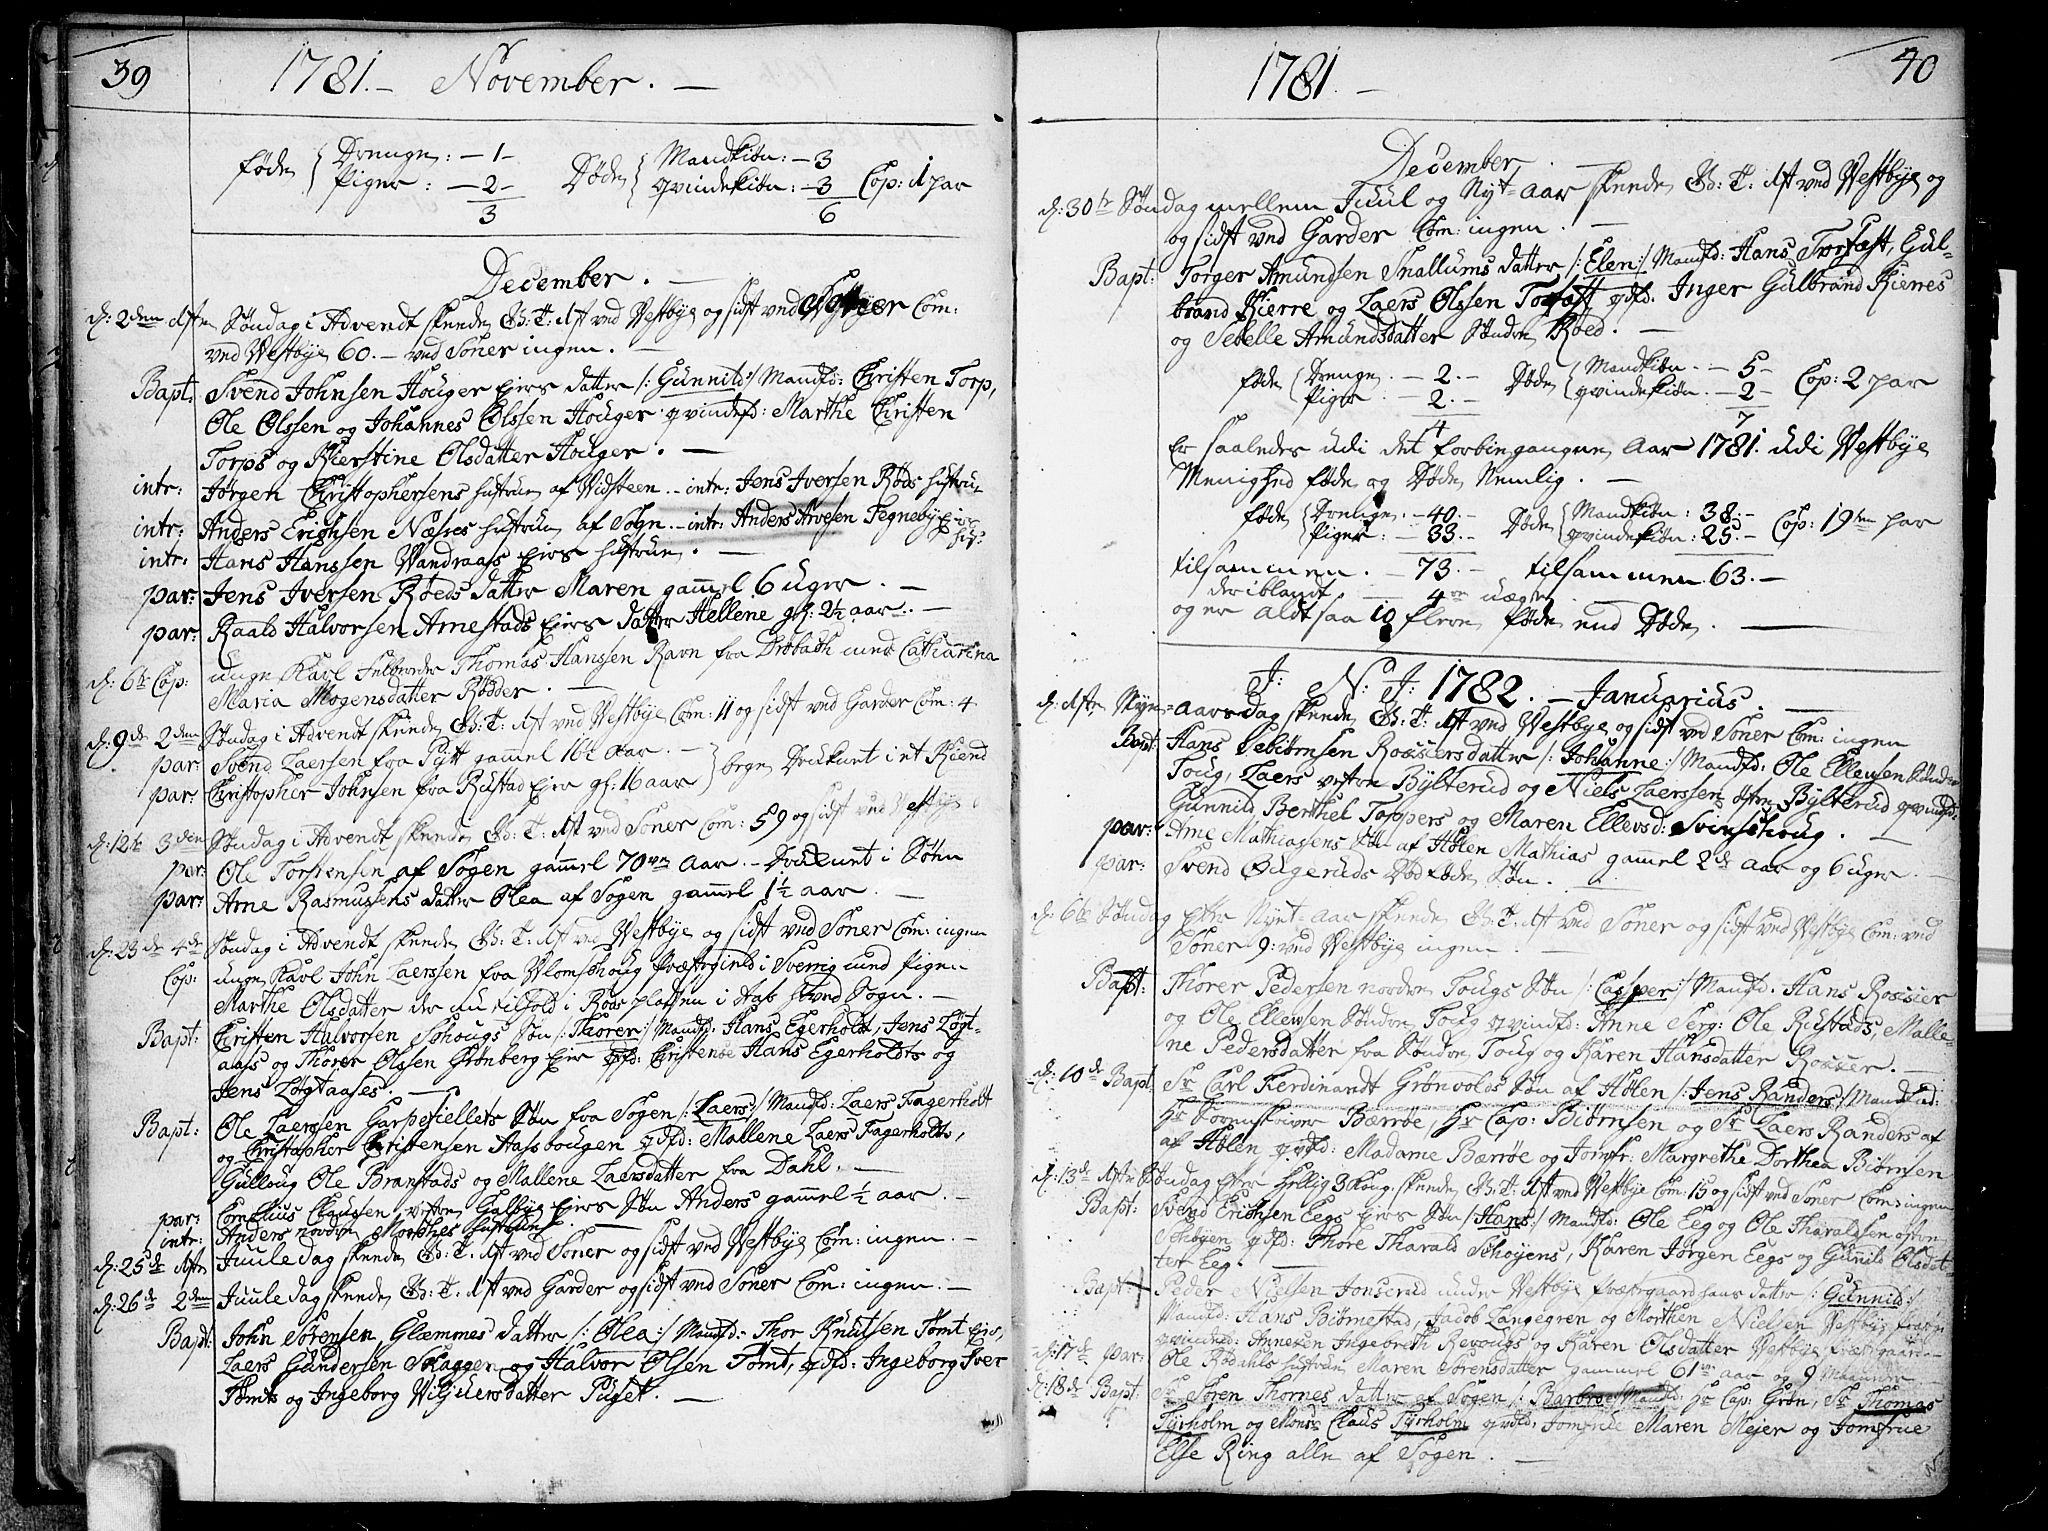 39
1781. — November. —
føde { Drenge: — 1 — Døde { Mandkiøn: — 3
Piger: — 2 — Qvindekiøn: — 3 Cop: 1 par
3 6
December. —
d: 2den 1ste Søndag i Advendt skeede G: T: 1st ved Vestbye og sidst ved Soner Com:
ved Vestbye 60. — ved Soner ingen. —
Bapt: Svend Johnsen Houger Eies datter /: Gunnild :/ Mandfd: Christen Torp,
Ole Olssen og Johannes Olssen Houger qvindefd: Marthe Christen
Torps og Kierstine Olsdatter Houger. —
intr: Jørgen Christophersens hustrue af Vidsteen. — intr: Jens Iversen Røds hustru
intr: Anders Erichsen Næsses hustrue af Sogn. — intr: Anders Arvesen Tegnebye Eies
hu:
intr: Hans Hanssen Wandraas Eies hustrue. —
par: Jens Iversen Røeds datter Maren gammel 6 uger. —
par: Raald Halvorsen Arnestads Eies datter Hellene gl: 2½ aar. —
d: 6te Cop: unge Karl Thomas Hanssen Ravn fra Drøbach med Catharina
Maria Mogensdatter Rødder. —
d: 9de 2den Søndag i Advendt skeede G: T: 1st ved Vestbye Com: 11 og sidst ved Garder Com: 4
par: Svend Laersen fra Pytt gammel 16 aar. — } begge Druknet i et Kiend
par: Christopher Johnsen fra Rustad Eie gl: 16 aar
d: 12te 3den Søndag i Advendt skeede G: T: 1st ved Soner Com: 59 og sidst ved Vestbye
par: Ole Torstensen af Sogen gammel 70 aar. — Druknet i Søen
par: Arne Rasmusens datter Olea af Sogen gammel 1½ aar. —
d: 23de 4de Søndag i Advendt skeede G: T: 1st ved Vestbye og sidst ved Soner Com: ingen
Cop: unge Karl John Laerssen fra Blomshoug Præstegield i Sverrig med Pigen
Marthe Olsdatter der nu tilhold i Røes pladsen i Aas Hoved Sogn. —
Bapt: Christen Halvorsen Schougs Søn /: Thorer :/ Mandfd: Hans Egerholdt, Jens Løgt-
aass og Thorer Olssen Grønberg Eie qvfd: Christense Hans Egerholdts og
Jens Løgtaases. —
Bapt: Ole Laerssen Garpesiellets Søn fra Sogen /: Laers :/ Mandfd: Laers Fagerholt
og Christopher Christensen Aasshougen qvfd: Mallene Laers Fagerholts,
Gulloug Ole Branstads og Mallene Laersdatter fra Dahl. —
par: Cornelius Clausen, vestre Galbye Eies Søn Anders gammel ½ aar. —
intr: Anders nordre Mørches hustrue. —
d: 25de 1ste Juule dag skeede G: T: 1st ved Soner og sidst ved Vestbye Com: ingen. —
d: 26de 2den Juule dag skeede G: T: 1st ved Garder og sidst ved Soner Com: ingen. —
Bapt: John Sørensen Glæmmes datter /: Olea :/ Mandfd: Thor Knutsen Tømt Eie,
Laers Gundersen Skaggen og Halvor Olsen Tømt, qvfd: Ingeborg Siver
Tømts og Ingeborg Viljuersdatter Puget. —
40
1781. —
December. —
d: 30te Søndag mellem Juul og Nyt-aar skeede G: T: 1st ved Vestbye og
og sidst ved Garder Com: ingen. —
Bapt: Torger Amundsen Snallums datter /: Elen :/ Mandfd: Hans Torfæst, Gul-
brand Kierre og Laers Olssen Torfæst qvfd: Inger Gulbrand Kierres
og Sebelle Amundsdatter Søndre Røed. —
føde { Drenge. — 2. — Døde { Mandkiøn. — 5 — Cop: 2 par
Piger. — 2. — qvindekiøn. — 2 —
4 7
Er saaledes udi det forbingangne aar 1781. udi Vestbye
Menighed føde og Døde Nemlig. —
føde { Drenge. — 40. — Døde { Mandkiøn: 38. — Cop: 19ten par
Piger: — 33. — qvindekiøn: 25. —
tilsammen. — 73. — tilsammen. 63. —
deriblandt. — 4re uægte. —
og er altsaa 10 flere føde end Døde. —
J: N: J: 1782. — Januarius. —
d: 1ste Nyn-aarsdag skeede G: T: 1st ved Vestbye og sidst ved Soner Com: ingen
Bapt: Hans Sebiørnsen Rossiers datter /: Johanne :/ Mandfd: Ole Ellensen Søndre
Toug, Laers vestre Bylterud og Niels Laerssen østre Bylterud qvindfd:
Gunnild Berthel Toppers og Maren Ellevsd: Svinshoug. —
par: Arne Mathiasens Søn af Hølen Mathias gammel 2de aar og 6 uger. —
par: Svend Bugeruds Død føde Søn. —
d: 6te Søndag Efter Nyt-aar skeede G: T: 1st ved Soner og sidst ved Vestbye Com: ved
Soner 9: ved Vestbye ingen. —
Bapt: Thorer Pedersen nordre Tougs Søn /: Casper :/ Mandfd: Hans Rossier
og Ole Ellensen Søndre Toug qvindf: Anne Serg: Ole Rustads, Malle-
ne Pedersdatter fra Søndre Toug og Karen Hansdatter Rossier. —
d: 10de Bapt: Sr Carl Ferdinandt Grønvolds Søn af Hølen /: Jens Randers :/ Mandfad:
Hr Sorenskriver Bærrøe, Hr Cap: Biørnsen og Sr Laers Randers af
af Hølen qvfd: Madame Bærrøe og Jomfr: Margrethe Dorthea Biørnsen
d: 13de 1ste Søndag Efter Hellig 3 Kong. skeede G: T: 1st ved Vestbye Com: 15 og sidst ved Soner Com: ingen
Bapt: Svend Erichsen Eegs Eies Søn /: Hans :/ Mandfd: Ole Eeg og Ole Tharaldsen østre
Schøyen qvfd: Thore Tharald Schøyens, Karen Jørgen Eegs og Gunnild Olsdat-
ter Eeg. —
Bapt: Peder Nielsen Jonserud under Vestbye Præstegaard hans datter /: Gunnild :/
Mandfd: Hans Biørnestad, Jacob Langegren og Morthen Nielsen Vestbye Præstgr
qvindfd: Annexen Ingebореth Revougs og Karen Olsdatter Vestbye Præstgaard —
d: 17de par: Ole Rødahls hustrue Maren Sørensdatter gammel 61 aar og 9 Maaneder
d: 18de Bapt: Sr Søren Thornes datter af Sogen /: Barbroe :/ Mandfd: Hr Cap: Grøn, Sr Thomas
Tyrholm og Monsr Claus Tyrholm qvfd: Jomfrue Maren Mejer og Jomfrue
Else Ring alle af Sogen. —